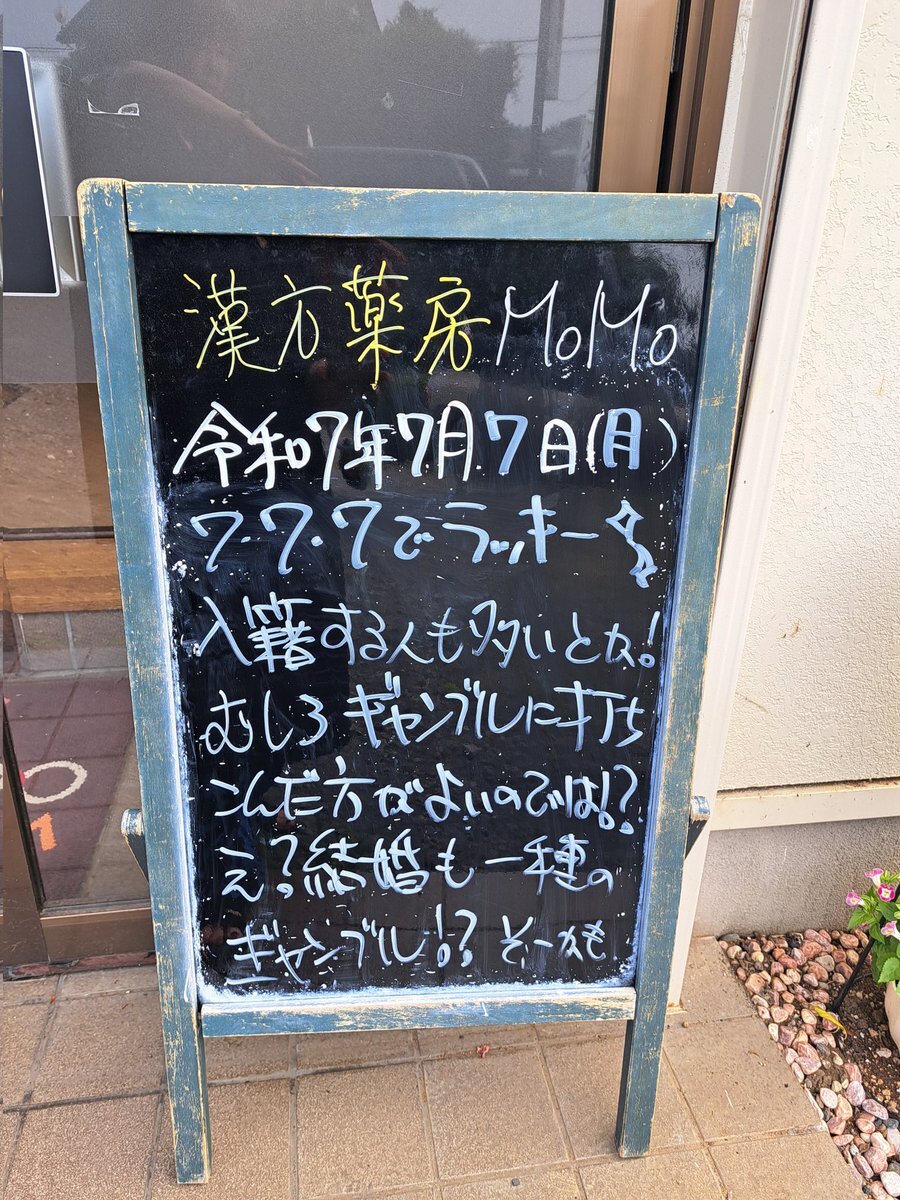 漢方薬房 MoMo
令和7年7月7日(月)
7・7・7でラッキー
入籍する人も多いとか!
むしろギャンブルに打ち
こんだ方がよいのでは!?
え?結婚も一種の
ギャンブル!? そーかも
1